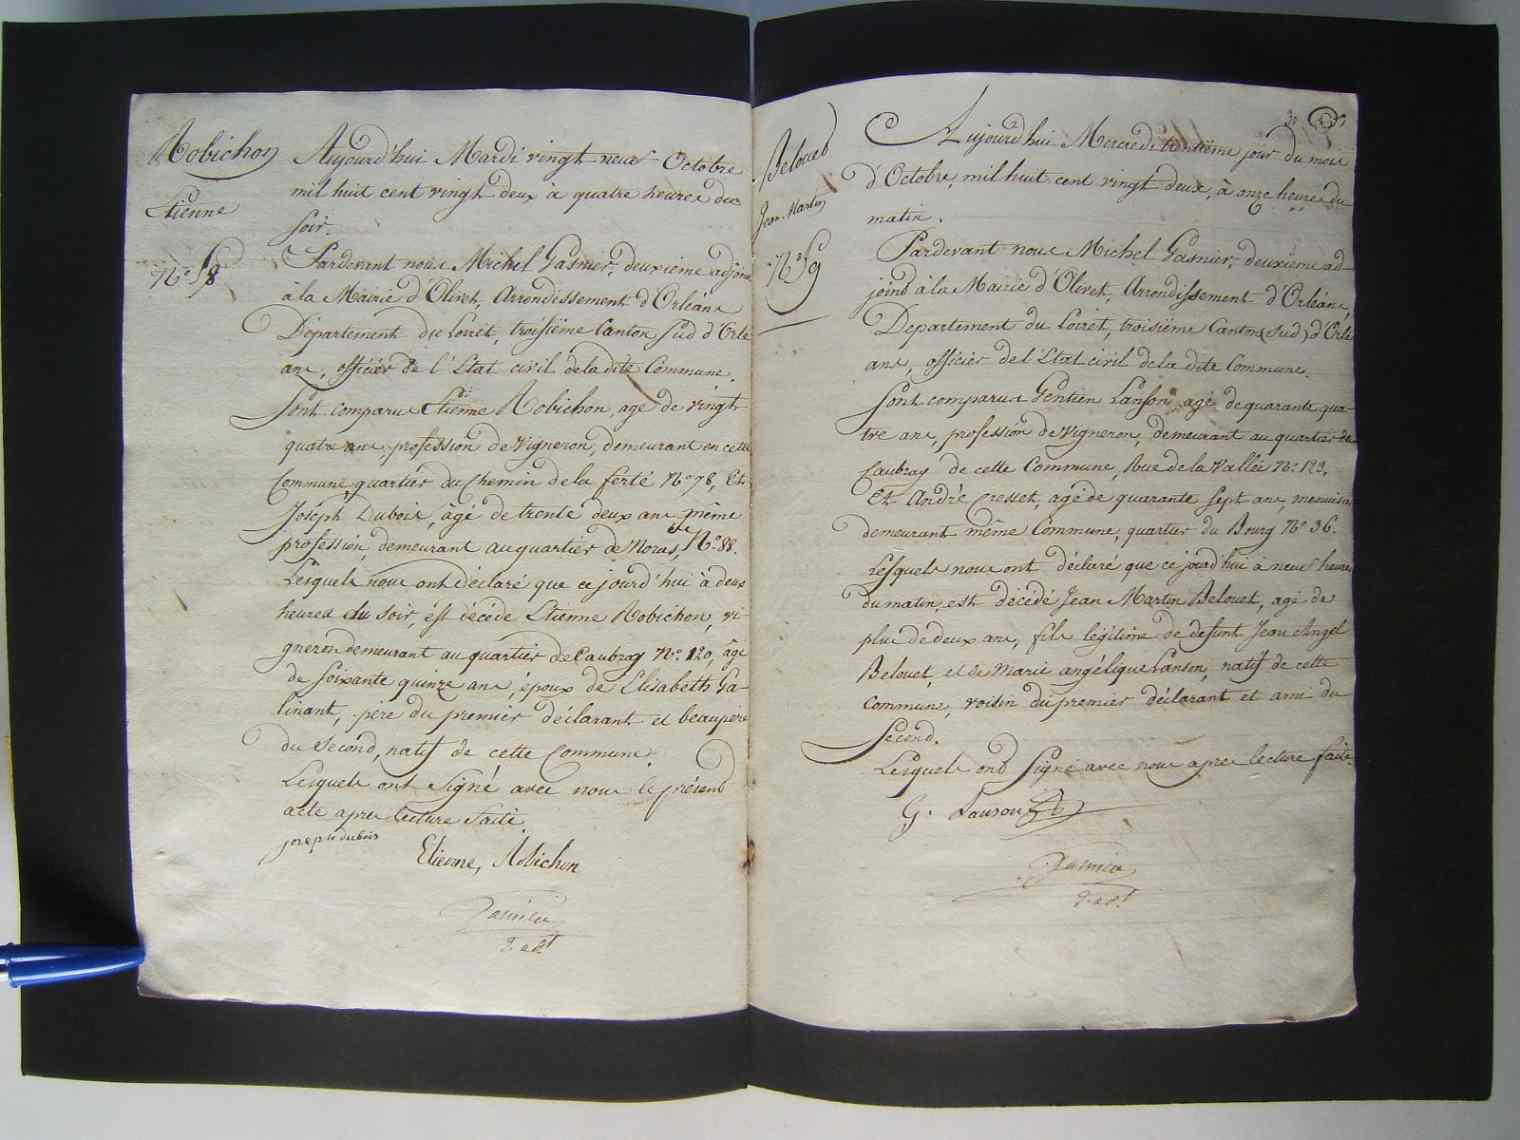 Robichon
Etienne
N.° 58
Aujourd'hui Mardi vingt neuf Octobre
mil huit cent vingt deux à quatre heures du
soir.
Pardevant nous Michel Gasnier, deuxieme adjoint
à la Mairie d'Olivet, Arrondissement d'Orléans
Département du Loiret, troisième Canton Sud d'Orlé
ans, officier de l'Etat civil dela dite Commune.
Sont comparus Etienne Robichon, age de vingt
quatre ans, profession de Vigneron, demeurant en cette
Commune quartier du Chemin de la ferté N.° 78, Et
Joseph Dubois, âgé de trente deux ans même
profession, demeurant au quartier de Noras, N.° 88.
Lesquels nous ont déclaré que ce jourd'hui à deux
heures du soir, est décédé Etienne Robichon, vi-
gneron demeurant au quartier de Caubray N.° 120, âgé
de soixante quinze ans, époux de Elisabeth Ga-
linant, père du premier déclarant et beaupère
du second, natif de cette Commune.
Lesquels ont signé avec nous le présent
acte apres lecture faite
joseph dubois
Etienne, Robichon
Gasnier
2. adt
Belouet
Jean-Martin
N.° 59
Aujourd'hui Mercredi trentième jour du mois
d'Octobre, mil huit cent vingt deux, à onze heures du
matin.
Pardevant nous Michel Gasnier, deuxième ad-
joint à la Mairie d'Olivet, Arrondissement d'Orléans,
Département du Loiret, troisième Canton (Sud) d'Orlé
ans, officier de l'Etat civil de la dite Commune.
Sont comparus Gentien Lanson agé de quarante qua-
tre ans, profession de Vigneron, demeurant au quartier de
Caubray de cette Commune, Rue de la Vallée N.° 123.
Et André Cresset, agé de quarante sept ans, menuisier
demeurant même Commune, quartier du Bourg N.° 36.
Lesquels nous ont déclaré que ce jourd'hui à neuf heures
du matin, est décédé Jean Martin Belouet, agé de
plus de deux ans, fils légitime de defunt Jean Angel
Belouet, et de Marie angélique Lanson, natif de cette
Commune, voisin du premier déclarant et ami du
Second.
Lesquels ont signé avec nous apres lecture faite
G. Lanson
Gasnier
2. adt